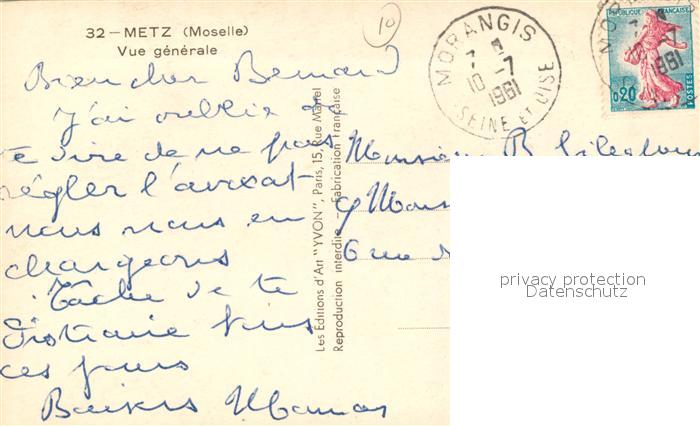 32 - METZ (Moselle)
Vue générale
10
MORANGIS
7
10 -7
1961
SEINE ET OISE
RÉPUBLIQUE FRANÇAISE
0,20
POSTES
Bien cher Bernard
J'ai oublié de
te dire de ne pas
régler l'avocat
nous nous en
chargeons
Tâche de te
ces jours
Baisers Maman
Les Éditions d'Art "YVON", Paris, 15, Rue Martel
Reproduction interdite Fabrication Française
Monsieur B
6 rue
privacy protection
Datenschutz